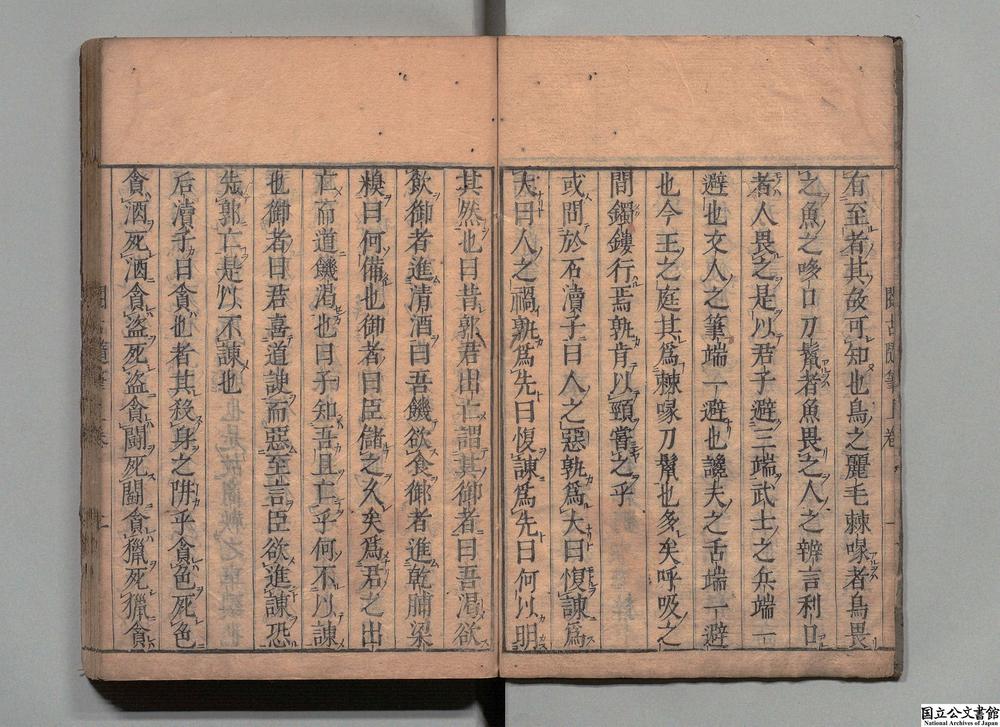 有至者其故可知也鳥之麗毛棘喙者鳥畏
之魚之哆口刀鬣者魚畏之人之辨言利口
者人畏之是以君子避三端武士之兵端一
避也文人之筆端一避也讒夫之舌端一避
也今王之庭其為棘喙刀鬣也多矣呼吸之
間鐲鏤行焉孰肯以頸嘗之乎
或問於石瀆子曰人之惡孰為大曰愎諫為
大曰人之禍孰為先曰愎諫為先曰何以明
其然也曰昔郭君出亡謂其御者曰吾渴欲
飲御者進清酒曰吾饑欲食御者進乾脯梁
糗曰何備也御者曰臣儲之久矣為君之出
亡而道饑渴也曰子知吾且亡乎何不以諫
也御者曰君喜道諛而惡至言臣欲進諫恐
先郭亡是以不諫也
石瀆子曰貪也者其殺身之阱乎貪色死色
貪酒死酒貪盜死盜貪鬪死鬪貪獵死獵貪
閱古隨筆上卷 一
閱古隨筆上卷 二
国立公文書館
National Archives of Japan